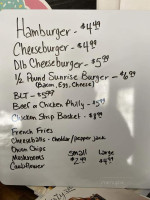 Hamburger - $4.49
Cheeseburger - $4.99
Dlb Cheeseburger - $5.99
1/2 Pound Sunrise Burger - $6.99
(Bacon, Egg, Cheese)
BLT - $5.99
Beef or Chicken Philly - $5.99
Chicken Strip Basket - $8.99
French Fries
Cheeseballs - cheddar/pepper jack
Onion Chips
Mushrooms Small Large
Cauliflower $2.99 $4.99